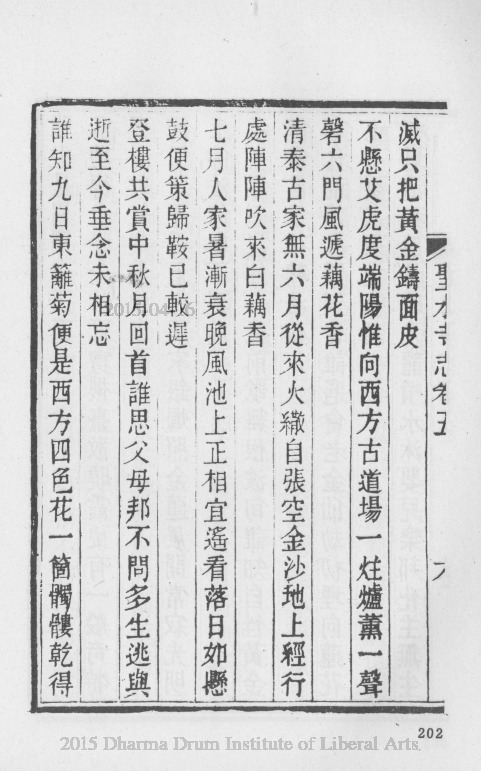 聖水寺志卷五
六
滅只把黃金鑄面皮
不懸艾虎度端陽惟向西方古道場一炷爐薰一聲
磬六門風遞藕花香
清泰古家無六月從來火繖自張空金沙地上經行
處陣陣吹來白藕香
七月人家暑漸衰晚風池上正相宜遙看落日如懸
鼓便策歸鞍已較遲
登樓共賞中秋月回首誰思父母邦不問多生逃與
逝至今垂念未相忘
誰知九日東籬菊便是西方四色花一箇髑髏乾得
202
2015 Dharma Drum Institute of Liberal Arts.